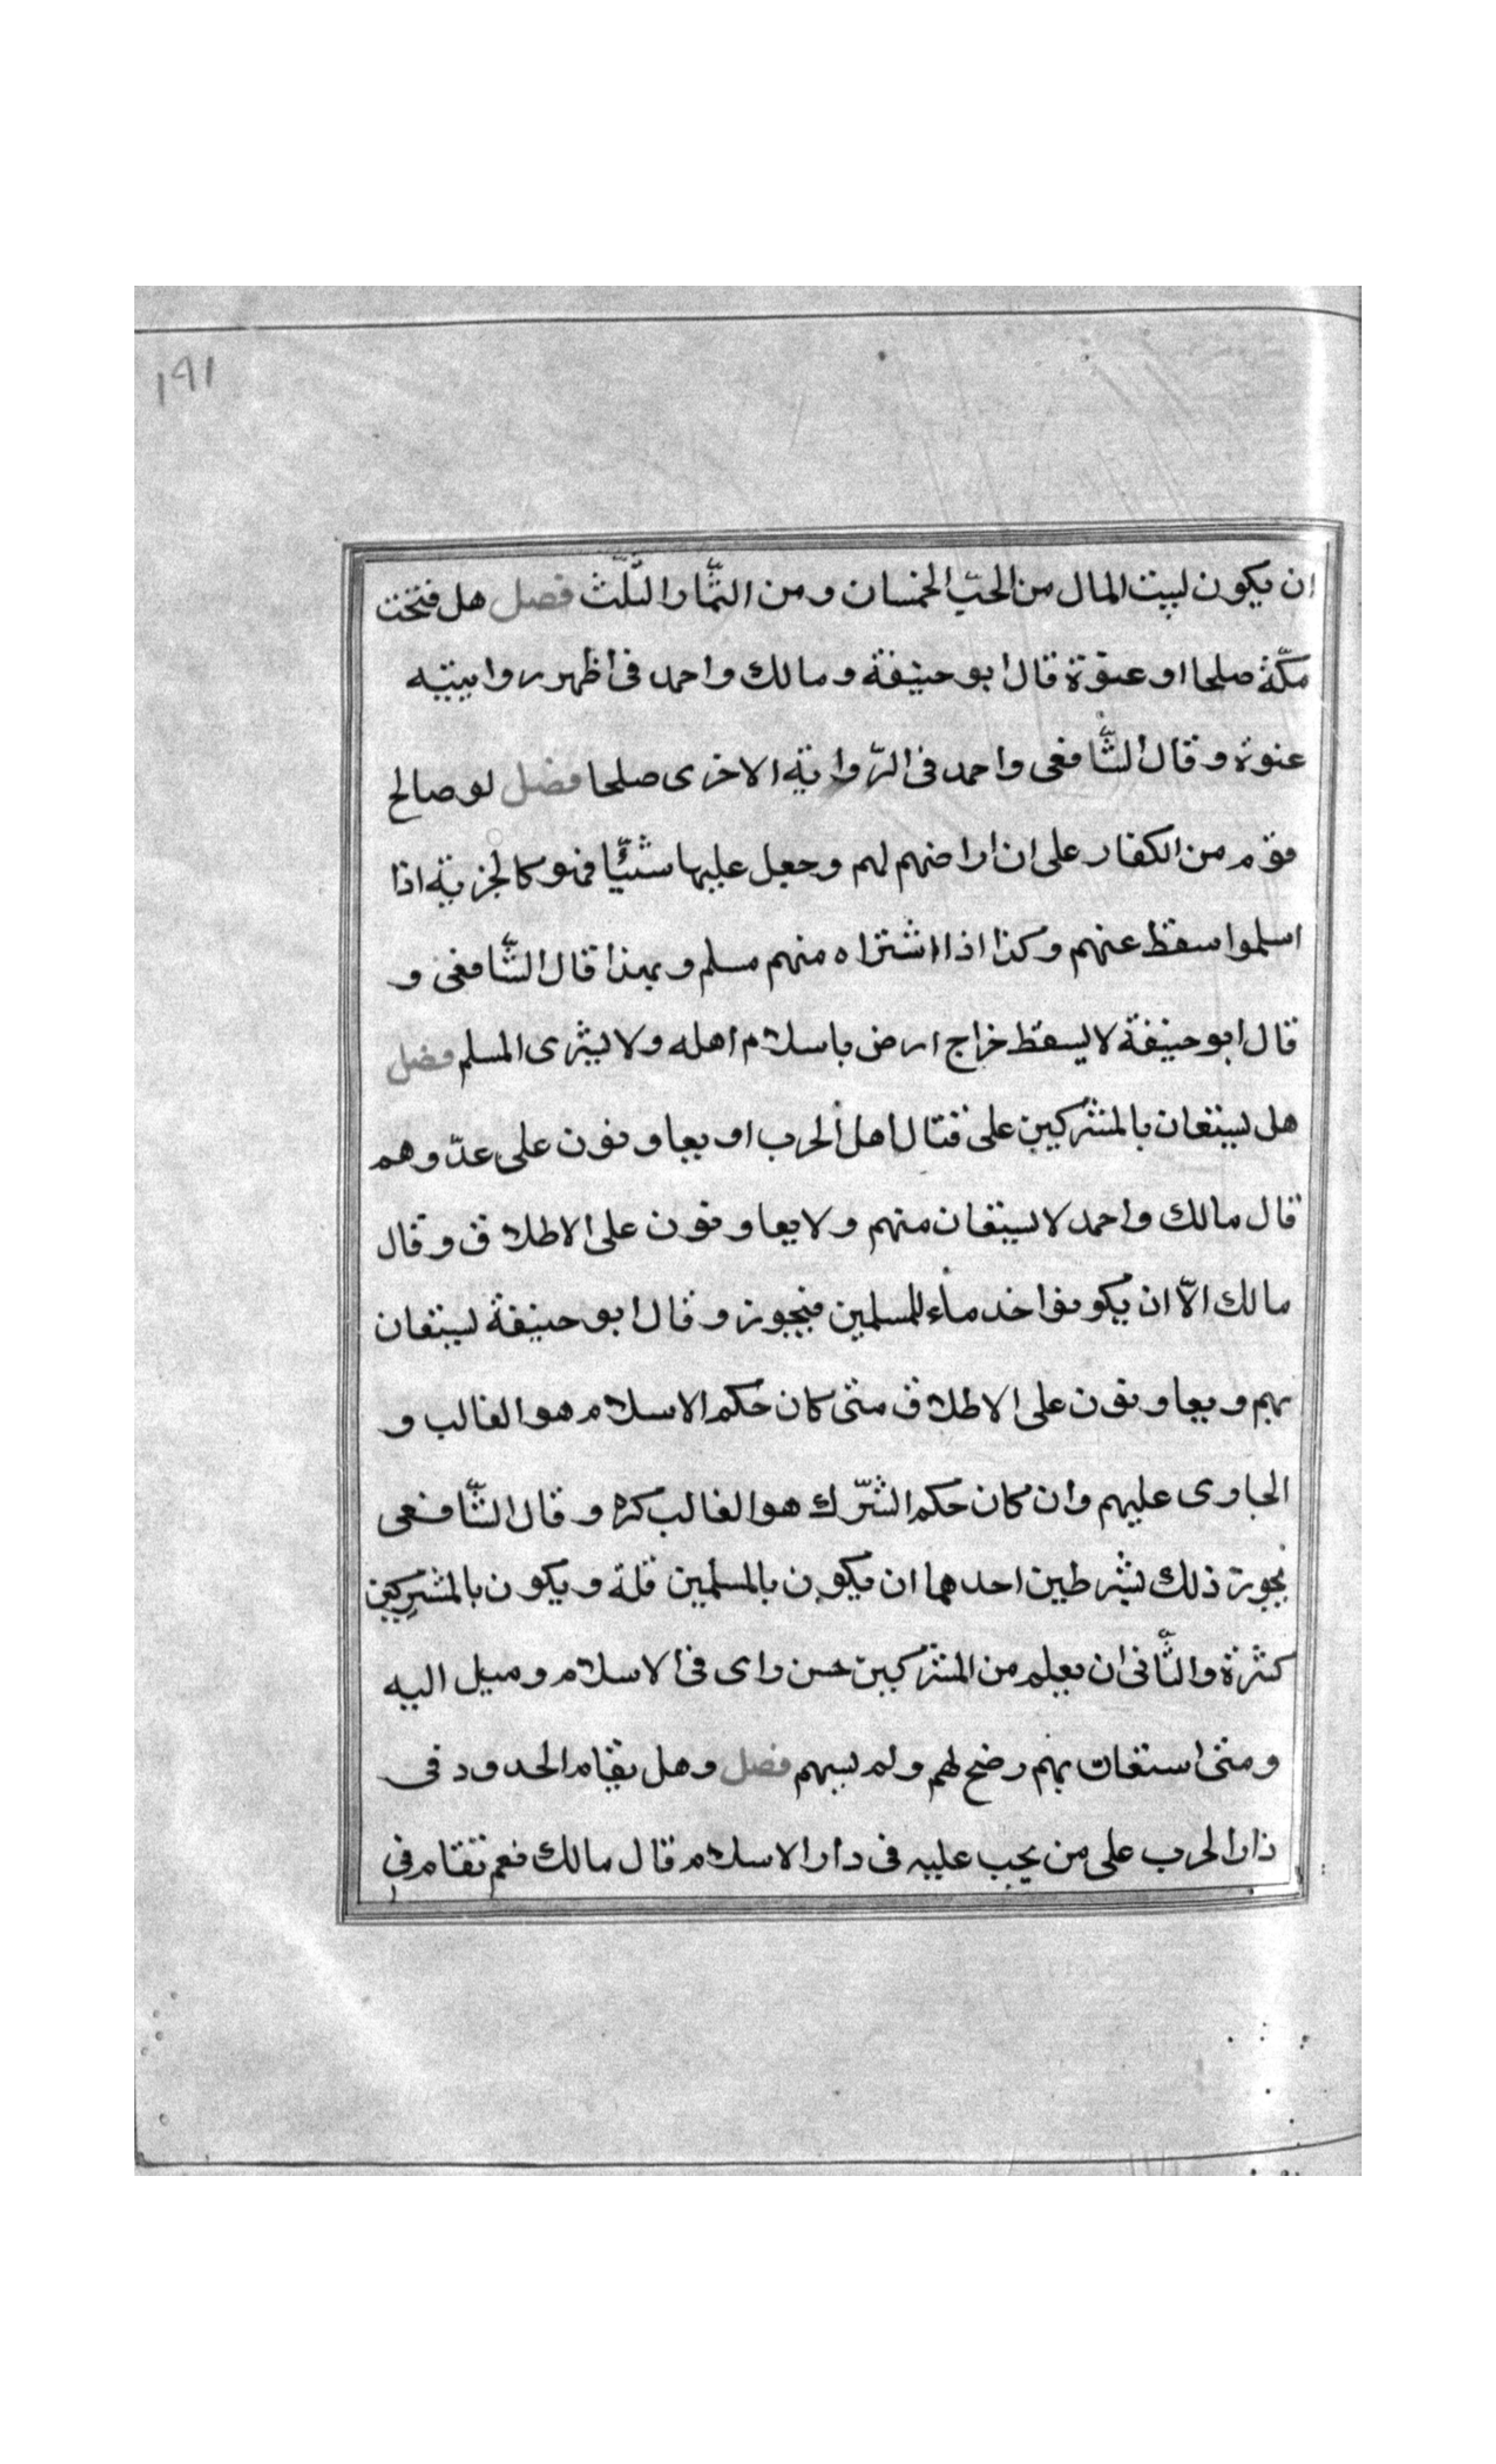 ١٩١
ان يكون لبيت المال من الحبّ الخمسان ومن الثّمار الثّلث فصل هل فتحت
مكّة صلحا او عنوة قال ابو حنيفة ومالك واحمد فى اظهر روايتيه
عنوة وقال الشّافعى واحمد فى الرّواية الاخرى صلحا فصل لو صالح
قوم من الكفار على ان اراضهم لهم وجعل عليها شيئًا فهو كالجزية اذا
اسلموا سقط عنهم وكذا اذا اشتراه منهم مسلم وبهذا قال الشّافعى و
قال ابو حنيفة لا يسقط خراج ارض باسلام اهله ولا يشرى المسلم فصل
هل يستعان بالمشركين على قتال اهل الحرب او يعاونون على عدّوهم
قال مالك واحمد لا يستعان منهم ولا يعاونون على الاطلاق وقال
مالك الاّ ان يكونوا خدماء للمسلمين فيجوز وقال ابو حنيفة يستعان
بهم ويعاونون على الاطلاق متى كان حكم الاسلام هو الغالب و
الجاوى عليهم وان كان حكم الشّرك هو الغالب كره وقال الشّافعى
يجوز ذلك بشرطين احدهما ان يكون بالمسلمين قلة ويكون بالمشركين
كثرة والثّانى ان يعلم من المشركين حسن راى فى الاسلام وميل اليه
ومتى استعان بهم رضخ لهم ولم يسهم فصل وهل يقام الحدود فى
دار الحرب على من يجب عليه فى دار الاسلام قال مالك نعم تقام فى